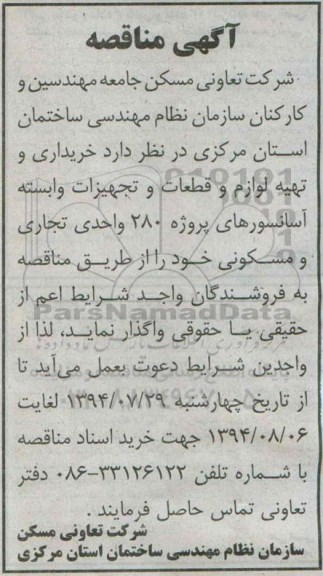 آگهی مناقصه
شرکت تعاونی مسکن جامعه مهندسین و
کارکنان سازمان نظام مهندسی ساختمان
استان مرکزی در نظر دارد خریداری و
تهیه لوازم و قطعات و تجهیزات وابسته
آسانسورهای پروژه ۲۸۰ واحدی تجاری
و مسکونی خود را از طریق مناقصه
به فروشندگان واجد شرایط اعم از
ParsNamadData
حقیقی یا حقوقی واگذار نماید، لذا از
واجدین شرایط دعوت بعمل می‌آید تا
از تاریخ چهارشنبه ۱۳۹۴/۰۷/۲۹ لغایت
۱۳۹۴/۰۸/۰۶ جهت خرید اسناد مناقصه
با شماره تلفن ۳۳۱۲۶۱۲۲-۰۸۶ دفتر
تعاونی تماس حاصل فرمایند .
شرکت تعاونی مسکن
سازمان نظام مهندسی ساختمان استان مرکزی